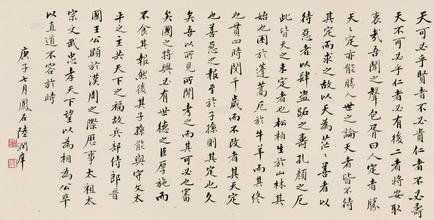 天可必乎賢者不必貴仁者不必壽
天不可必乎仁者必有後二者將安取
衷哉吾聞之聲包胥曰人定者勝
天々定亦能勝世之論天者皆不待
其定而求之故以天為茫々善者以
待惡者以肆盜跖之壽孔顏之厄
此皆天之未定者也松柏生於山林其
始也困於蓬蒿厄於牛羊而其終
也貫四時閱千歲而不改者其天定
也善惡之報至於子孫則其定也久
矣吾以所見所聞考之而其可必也審
矣國之將興必有世德之臣厚施而
不食其報然後其子孫能與守文太
平之主共天下之福故兵部侍郎晉
國王公顯於漢周之際歷事太祖太
宗文武忠孝天下望以為相為公卒
以直道不容於時
庚子七月鳳石陸潤庠